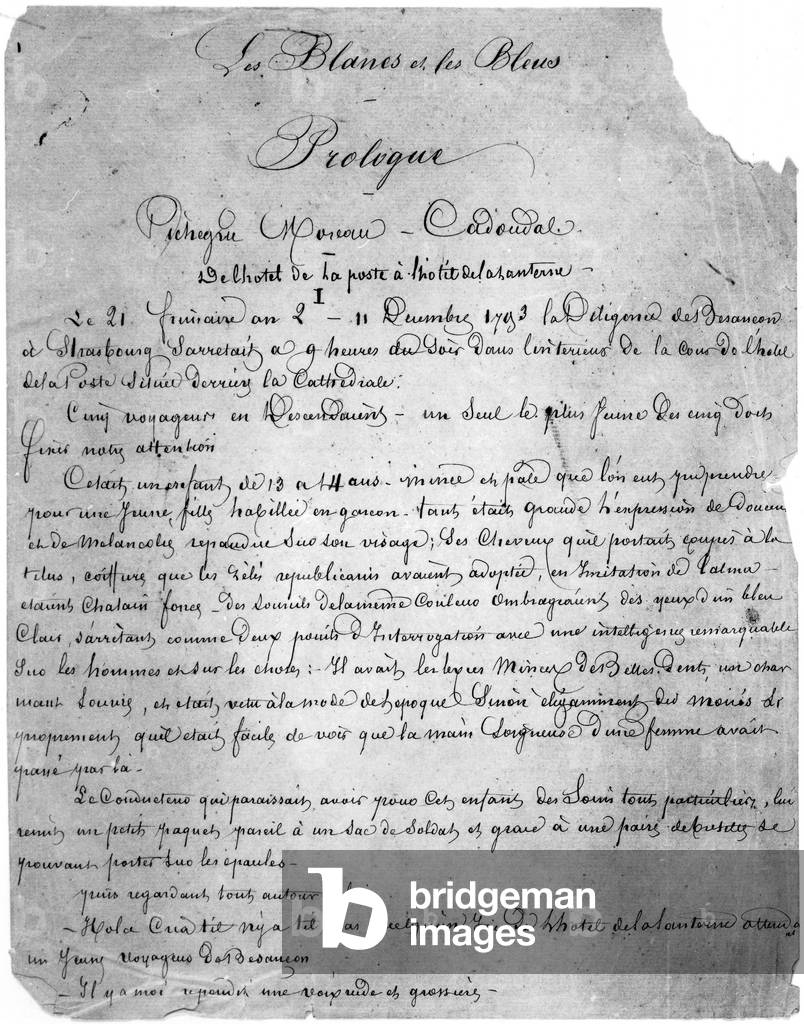 Les Blancs et les Bleus
Prologue
Pichegru Moreau – Cadoudal.
De l'hotel de la poste à l'hotel de la Lanterne –
I
Le 21 frimaire an 2 – 11 Decembre 1793 la Diligence de Besancon
à Strasbourg s'arretait a 9 heures du soir dans l'interieur de la cour de l'hotel
de la Poste située derrière la Cathédrale.
Cinq voyageurs en Descendaient – un seul le plus jeune des cinq doit
fixer notre attention
C'etait un enfant de 13 a 14 ans – mince et pâle que l'on eut pu prendre
pour une Jeune fille habillée en garcon – tant était grande l'expression de douceur
et de Melancolie repandue sur son visage; Ses Cheveux qu'il portait coupés à la
titus, coiffure que les zélés republicains avaient adoptée, en Imitation de talma –
etaient Chatain foncé – des sourcils de la meme Couleur Ombrageaient des yeux d'un bleu
Clair, s'arrêtant comme deux points d'Interrogation avec une intelligence remarquable
sur les hommes et sur les choses : – Il avait les levres Minces de Belles Dents, un char
mant Sourire, et etait vetu à la mode de l'epoque Sinon élégamment du moins si
proprement qu'il etait facile de voir que la main Soigneuse d'une femme avait
passé par là –
Le Conducteur qui paraissait avoir pour cet enfant des Soins tout particuliers, lui
remit un petit paquet pareil à un sac de Soldat et grace à une paire de bretelles se
pouvant porter sur les epaules –
puis regardant tout autour
– Hola Cria t il n'y a t il de l'hotel de la Lanterne attendant
un Jeune voyageur de Besancon
– Il y a moi repondit une voix rude et grossière –
b
bridgeman
images